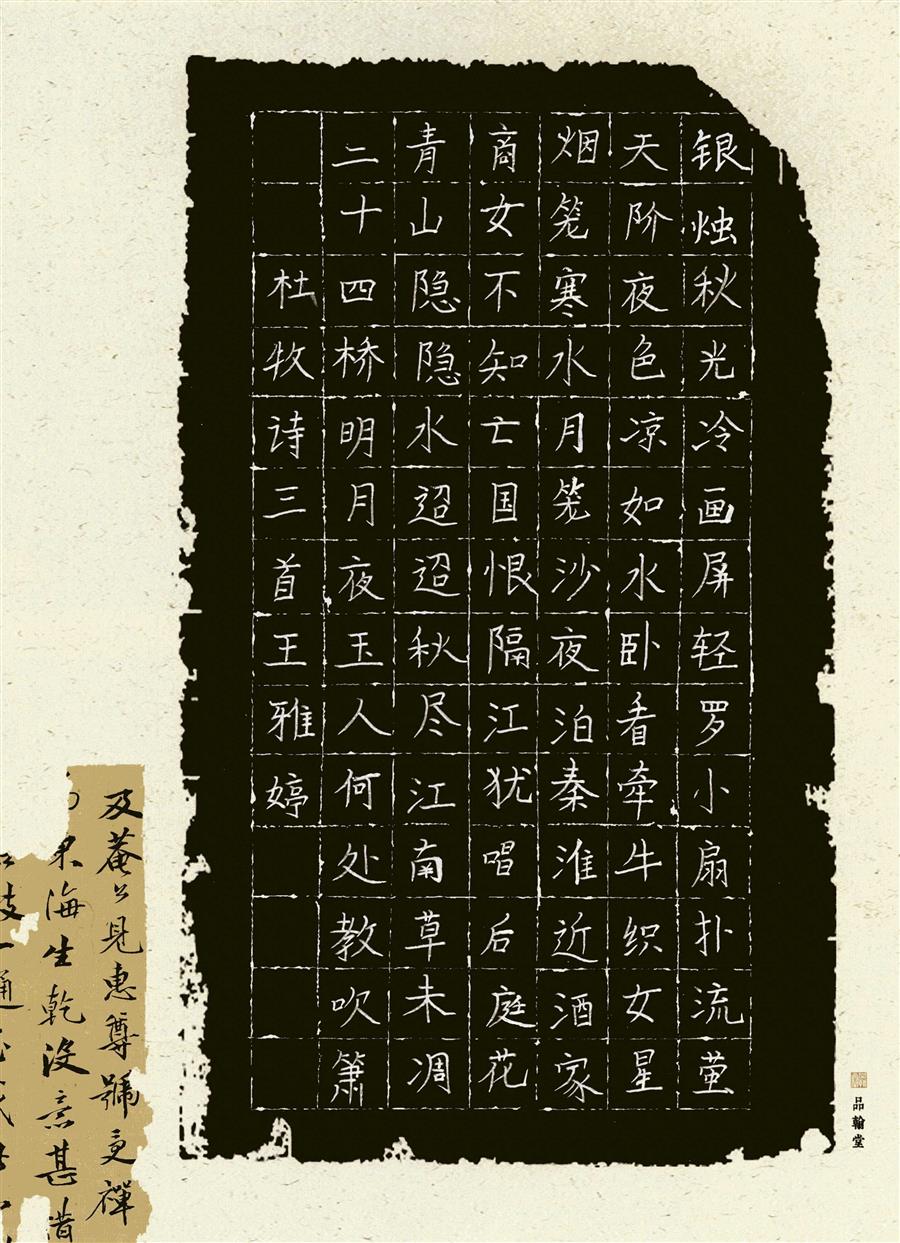 银烛秋光冷画屏轻罗小扇扑流萤
天阶夜色凉如水卧看牵牛织女星
烟笼寒水月笼沙夜泊秦淮近酒家
商女不知亡国恨隔江犹唱后庭花
青山隐隐水迢迢秋尽江南草未凋
二十四桥明月夜玉人何处教吹箫
杜牧诗三首王雅婷
品翰堂
及菴公見惠尊號更禪
海生乾没意甚